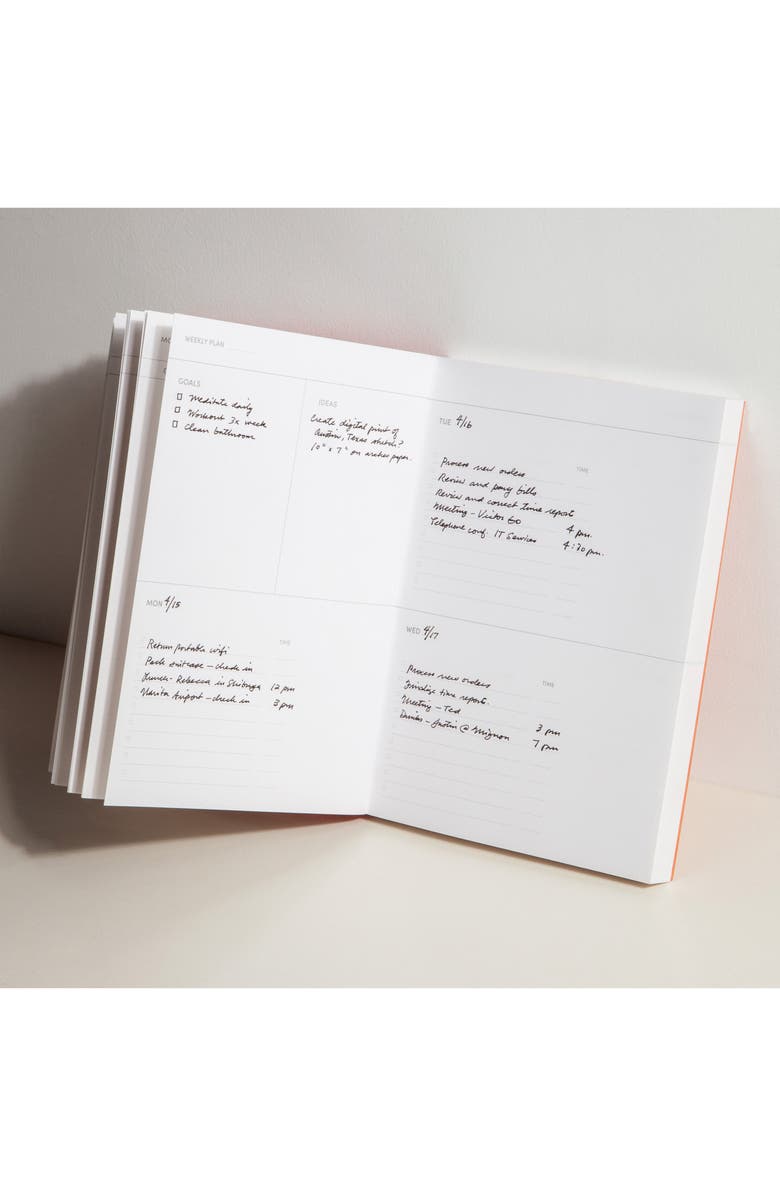 WEEKLY PLAN
GOALS
Meditate daily
Workout 3x week
Clean bathroom
IDEAS
Create digital print of
Austin, Texas sketch?
10" x 7" on arches paper.
MON 4/15
TIME
Return portable wifi
Pack suitcase – check in
Lunch - Rebecca in Shibuya 12 pm
Narita Airport – check in 3 pm
TUE 4/16
TIME
Process new orders
Review and pay bills
Review and correct time reports
Meeting – Victor 4 pm
Telephone conf. IT Services 4:30 pm.
WED 4/17
TIME
Process new orders
Finalize time reports.
Meeting – Ted 3 pm
Drinks – Justin @ Mignon 7 pm